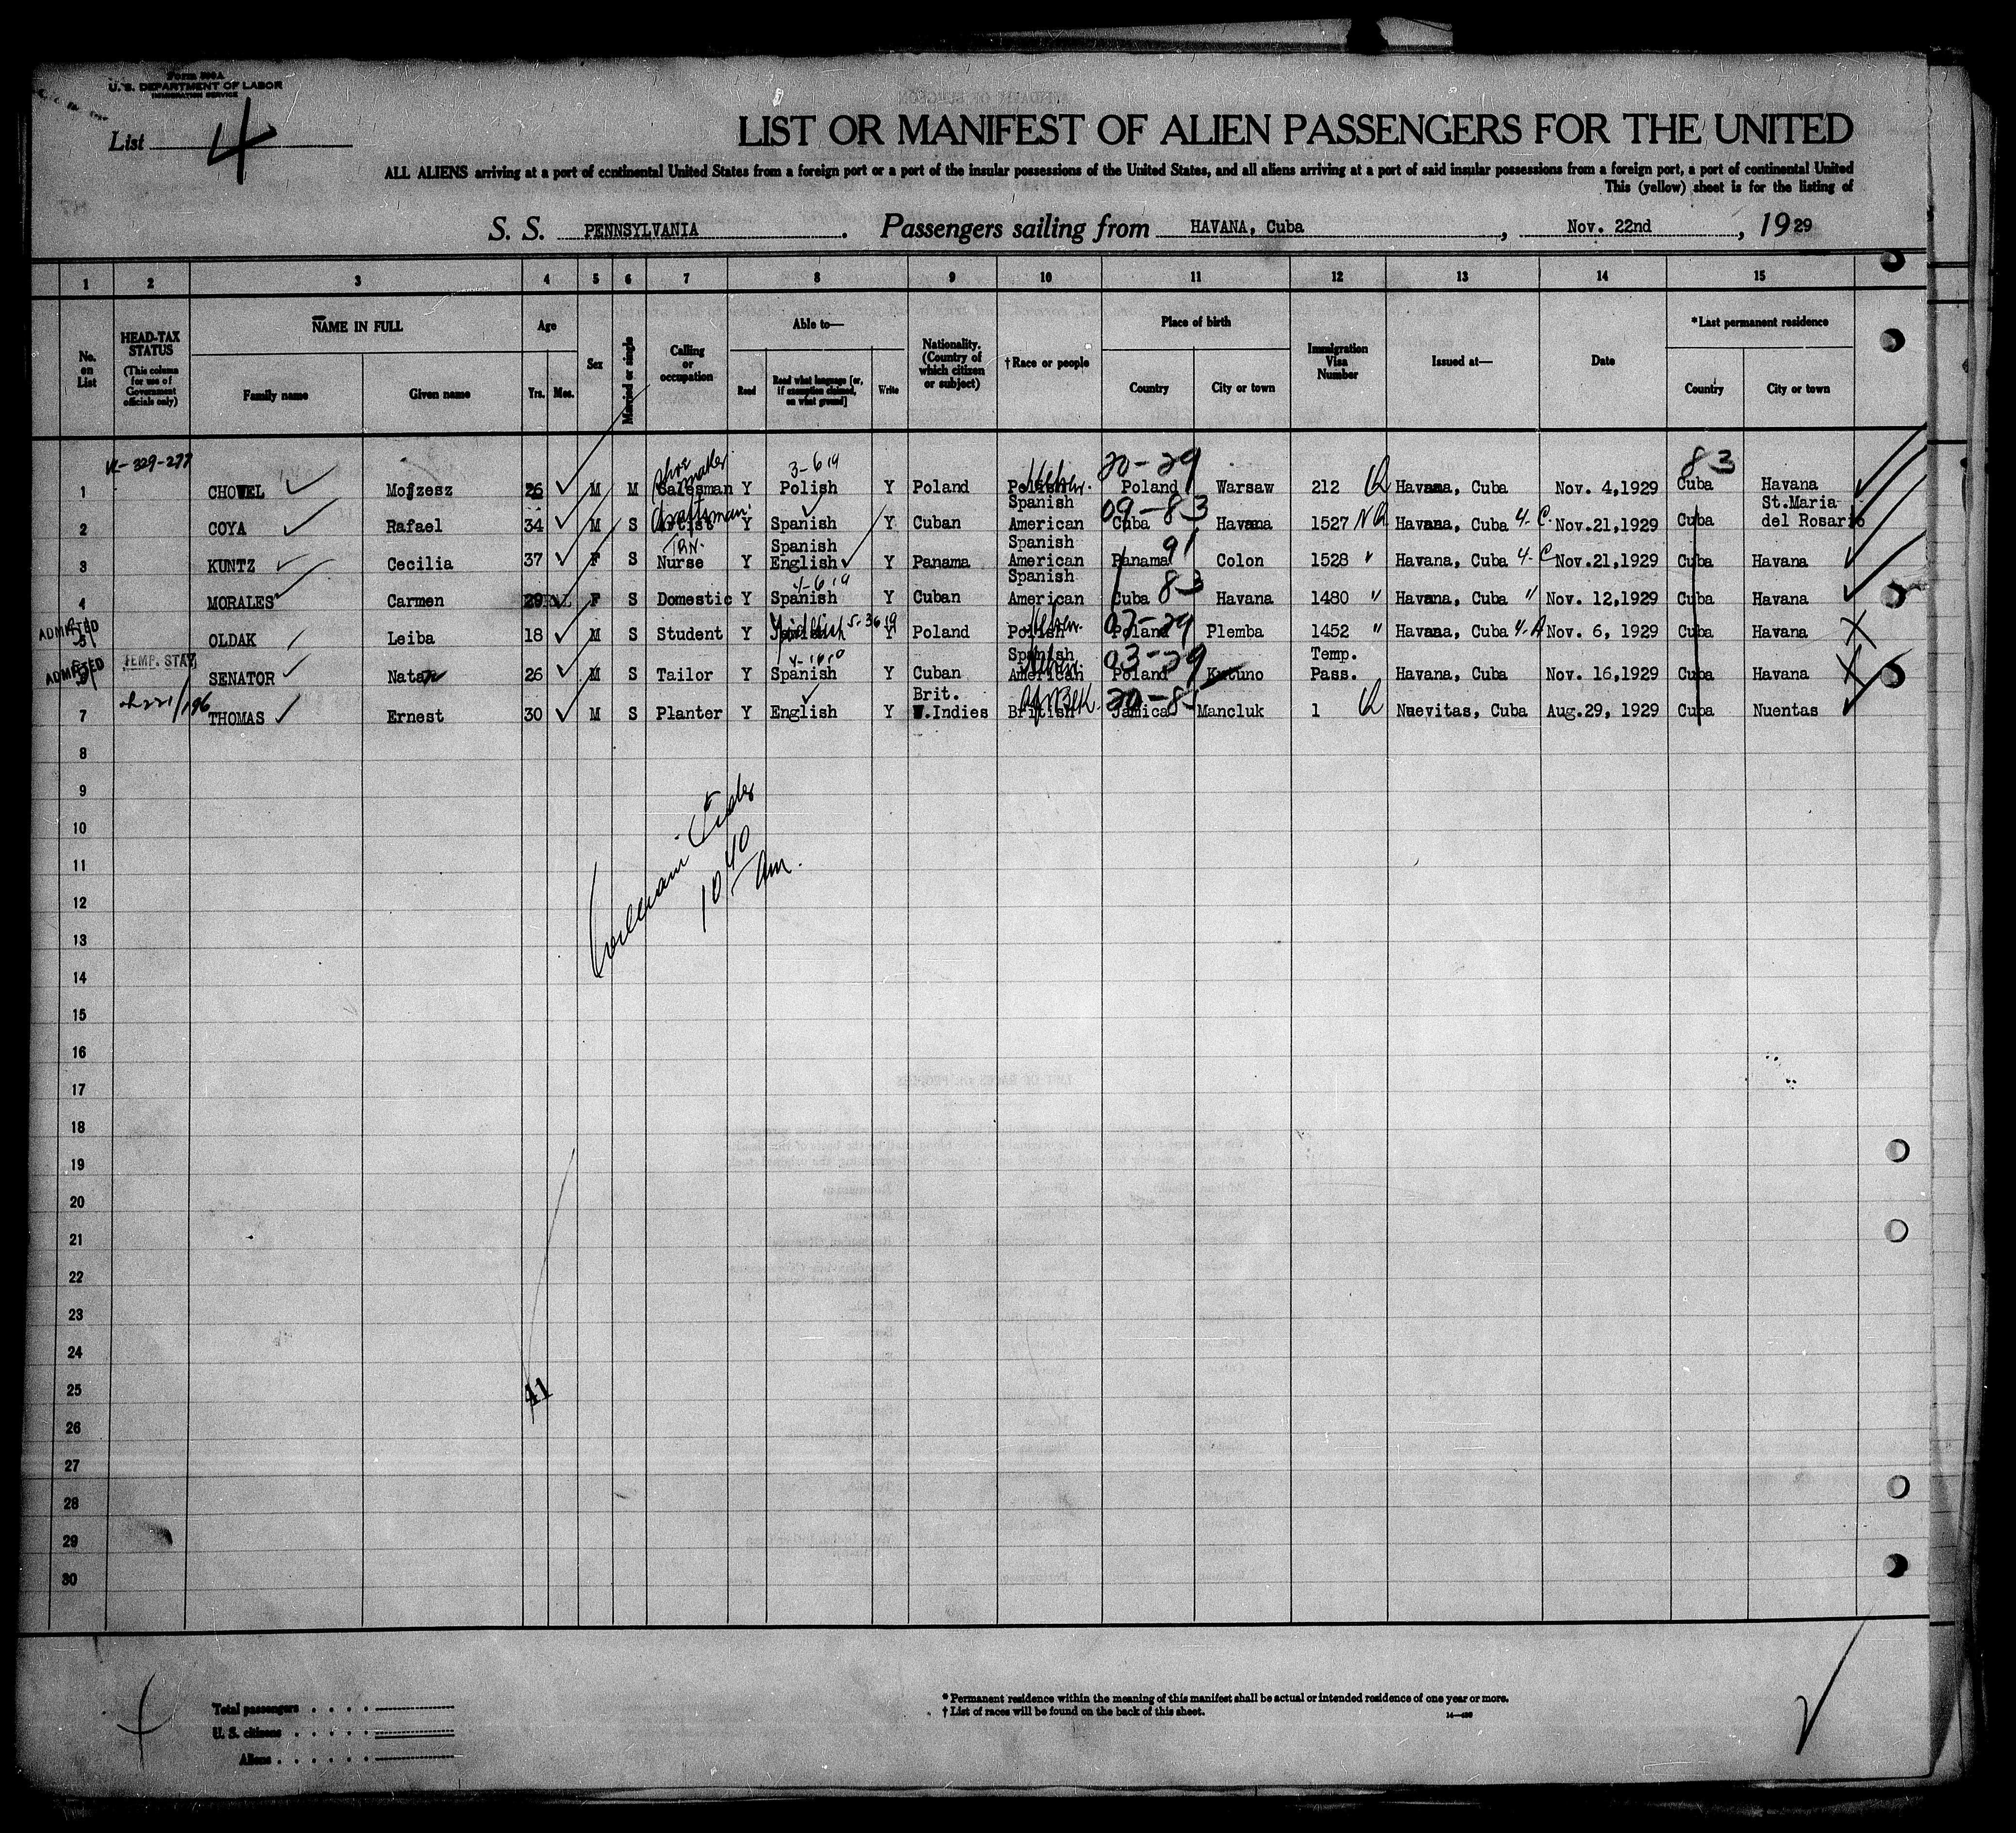 Form 500A
U. S. DEPARTMENT OF LABOR
IMMIGRATION SERVICE
List 4
LIST OR MANIFEST OF ALIEN PASSENGERS FOR THE UNITED
ALL ALIENS arriving at a port of continental United States from a foreign port or a port of the insular possessions of the United States, and all aliens arriving at a port of said insular possessions from a foreign port, a port of continental United
This (yellow) sheet is for the listing of
S. S. PENNSYLVANIA. Passengers sailing from HAVANA, Cuba, Nov. 22nd, 1929
1 2 3 4 5 6 7 8 9 10 11 12 13 14 15
No. on List
HEAD-TAX STATUS (This column for use of Government officials only)
NAME IN FULL
Family name Given name
Age
Yrs. Mos.
Sex
Married or single
Calling or occupation
Able to—
Read Read what language [or, if exemption claimed, on what ground] Write
Nationality. (Country of which citizen or subject)
† Race or people
Place of birth
Country City or town
Immigration Visa Number
Issued at—
Date
*Last permanent residence
Country City or town
1 CHOWEL Mojzesz 26 M M Salesman Shoemaker Y Polish 3-6 19 Y Poland Polish Hebrew. Poland 20-29 Warsaw 212 Q Havana, Cuba Nov. 4,1929 Cuba 83 Havana
2 COYA Rafael 34 M S Artist Draftsman. Y Spanish Y Cuban Spanish American Cuba 09-83 Havana 1527 NQ Havana, Cuba 4-C. Nov.21,1929 Cuba St.Maria del Rosario
3 KUNTZ Cecilia 37 F S Nurse Y Spanish English Y Panama Spanish American Panama 91 Colon 1528 " Havana, Cuba 4-C Nov.21,1929 Cuba Havana
4 MORALES Carmen 29 F S Domestic Y Spanish Y Cuban Spanish American Cuba 83 Havana 1480 " Havana, Cuba " Nov. 12,1929 Cuba Havana
ADMITTED 5 OLDAK Leiba 18 M S Student Y Yiddish Y Poland Polish Hebrew. Poland 07-29 Plemba 1452 " Havana, Cuba 4-A Nov. 6, 1929 Cuba Havana
ADMITTED 6 TEMP. STAY SENATOR Natan 26 M S Tailor Y Spanish Y Cuban Spanish American Hebrew. Poland 03-29 Kutuno Temp. Pass. Havana, Cuba Nov. 16,1929 Cuba Havana
7 THOMAS Ernest 30 M S Planter Y English Y Brit. W.Indies British Jamica 20-85 Mancluk 1 Q Nuevitas, Cuba Aug.29, 1929 Cuba Nuentas
8
9
10
11
12
13
14
15
16
17
18
19
20
21
22
23
24
25
26
27
28
29
30
10 40 Am.
41
Total passengers
U. S. citizens
Aliens
* Permanent residence within the meaning of this manifest shall be actual or intended residence of one year or more.
† List of races will be found on the back of this sheet.